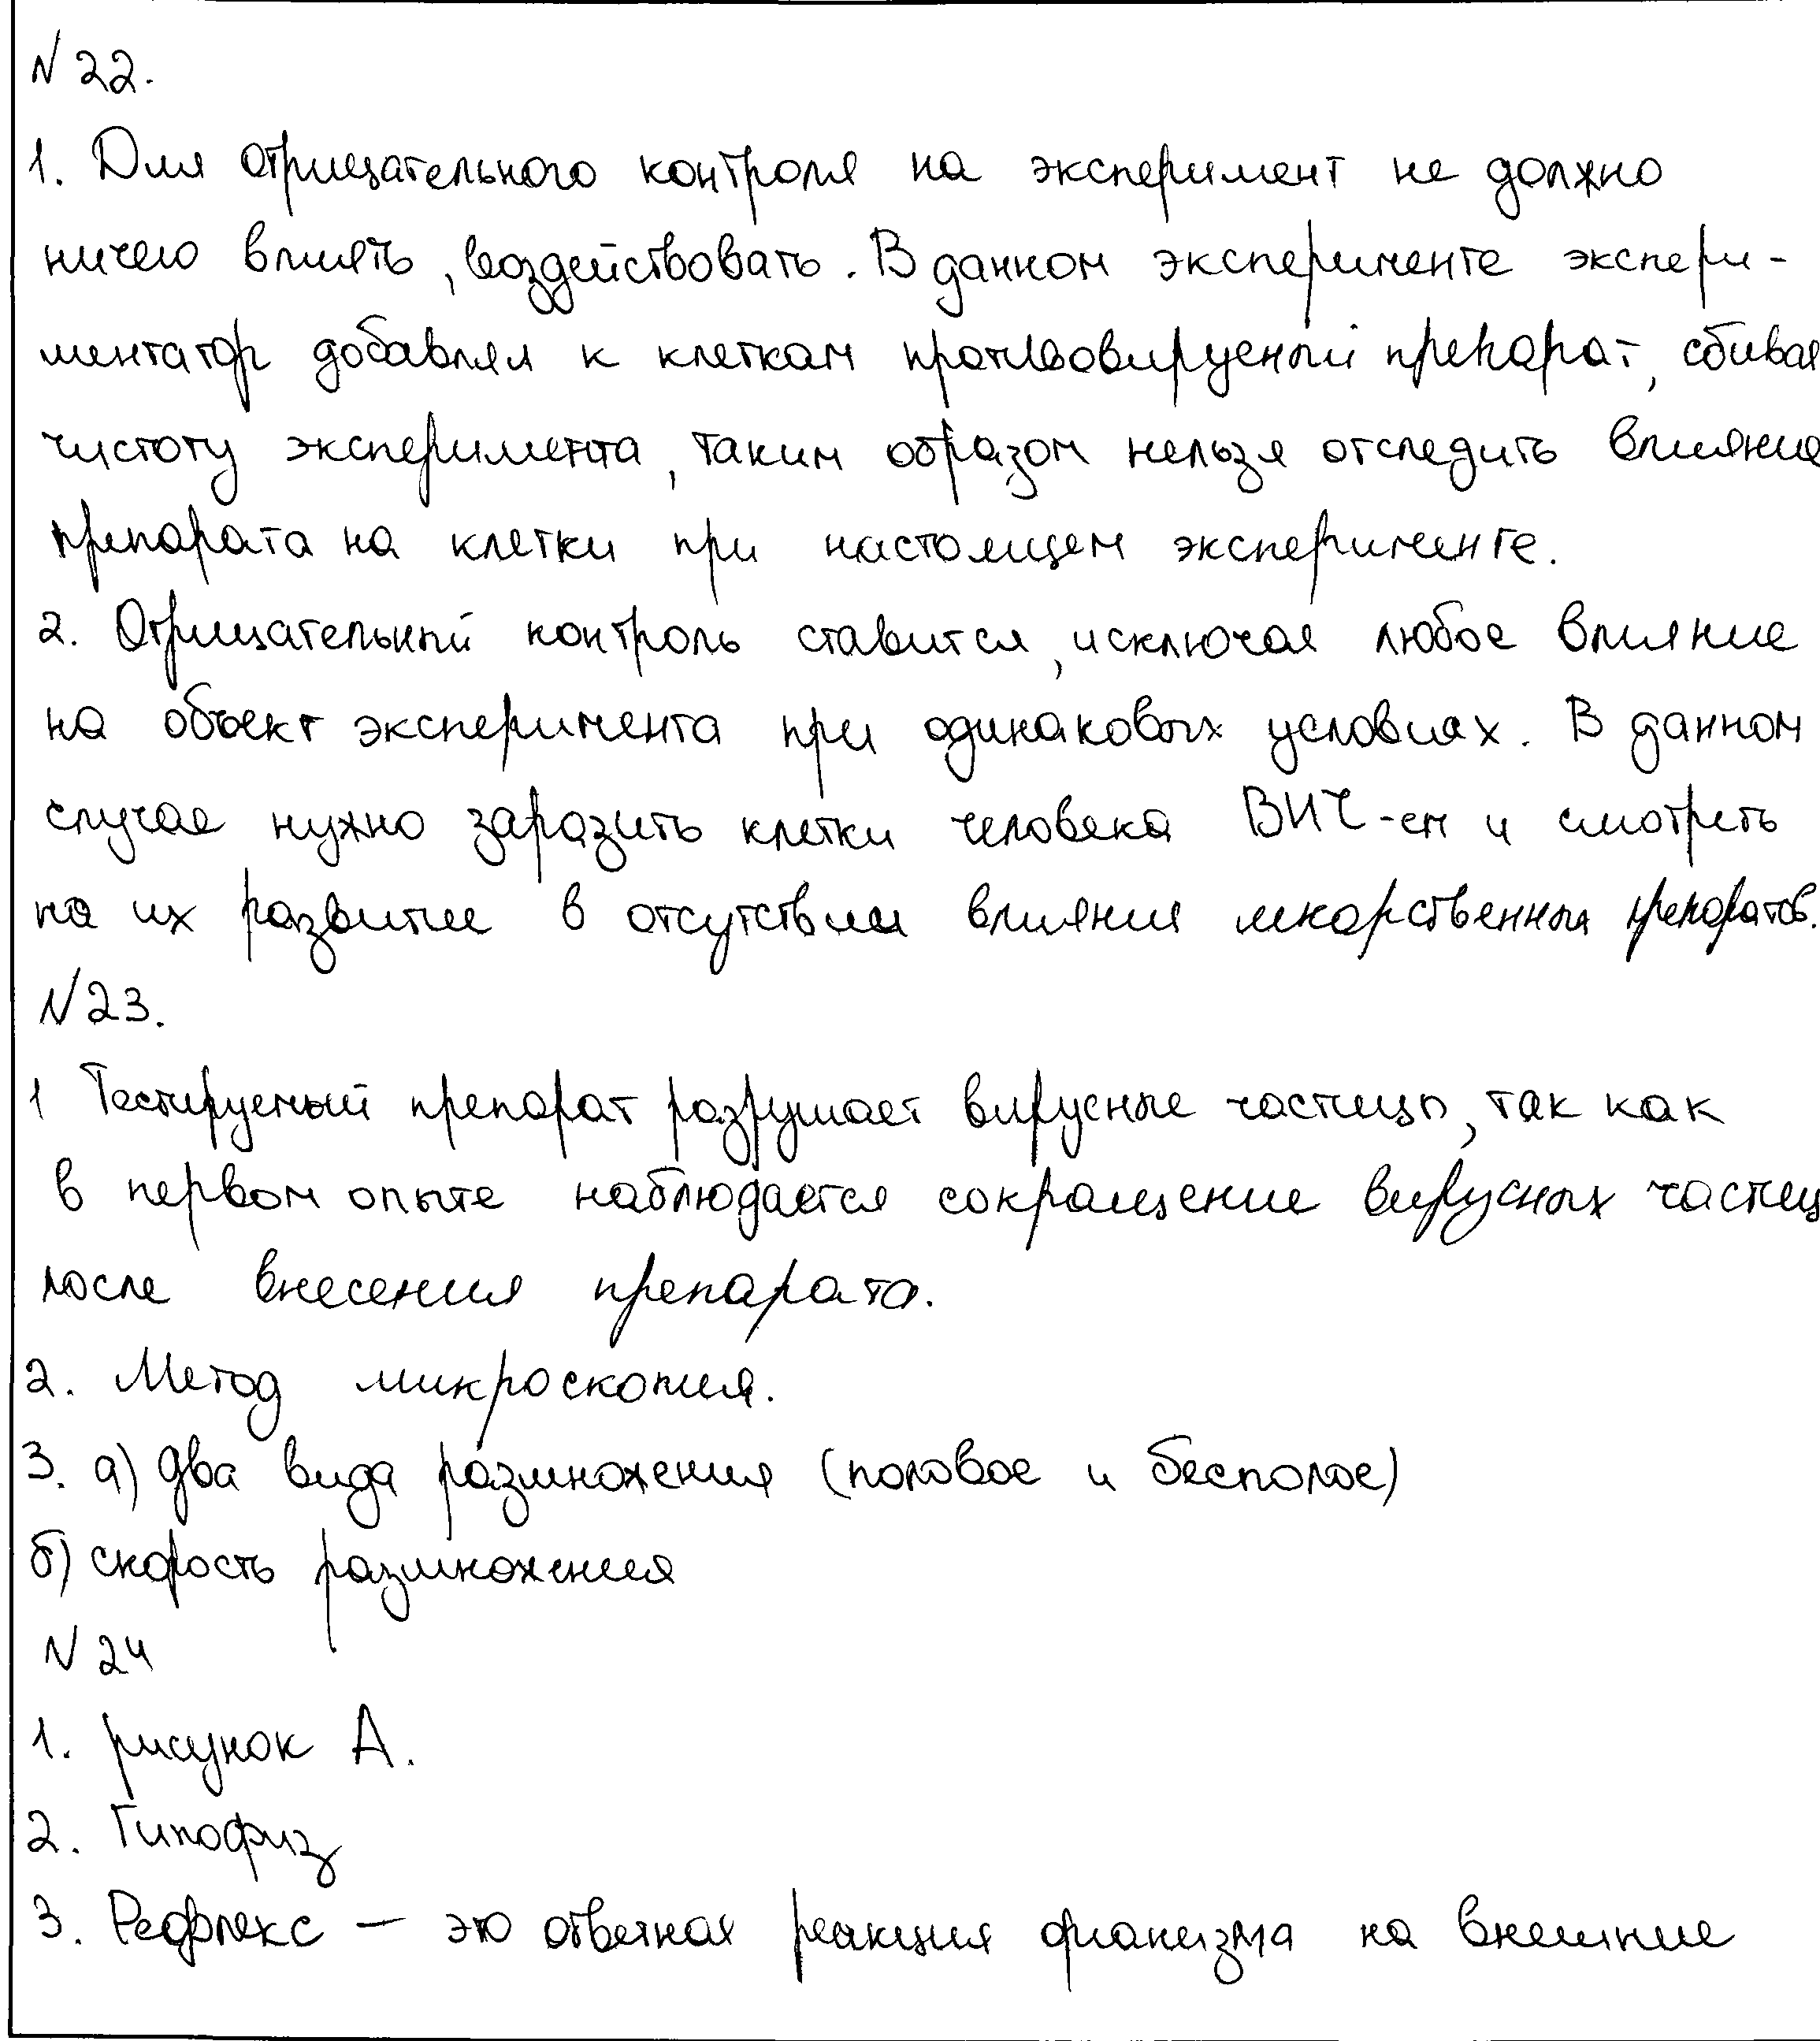 N 22.
1. Для отрицательного контроля на эксперимент не должно
ничего влиять, воздействовать. В данном эксперименте экспери-
ментатор добавлял к клеткам противовирусный препарат, сбивая
чистоту эксперимента, таким образом нельзя отследить влияние
препарата на клетки при настоящем эксперименте.
2. Отрицательный контроль ставится, исключая любое влияние
на объект эксперимента при одинаковых условиях. В данном
случае нужно заразить клетки человека ВИЧ-ем и смотреть
на их развитие в отсутствии влияния лекарственных препаратов.
N 23.
1 Тестируемый препарат разрушает вирусные частицы, так как
в первом опыте наблюдается сокращение вирусных частиц
после внесения препарата.
2. Метод микроскопия.
3. а) два вида размножения (половое и бесполое)
б) скорость размножения
N 24
1. рисунок А.
2. Гипофиз
3. Рефлекс — это ответная реакция организма на внешние